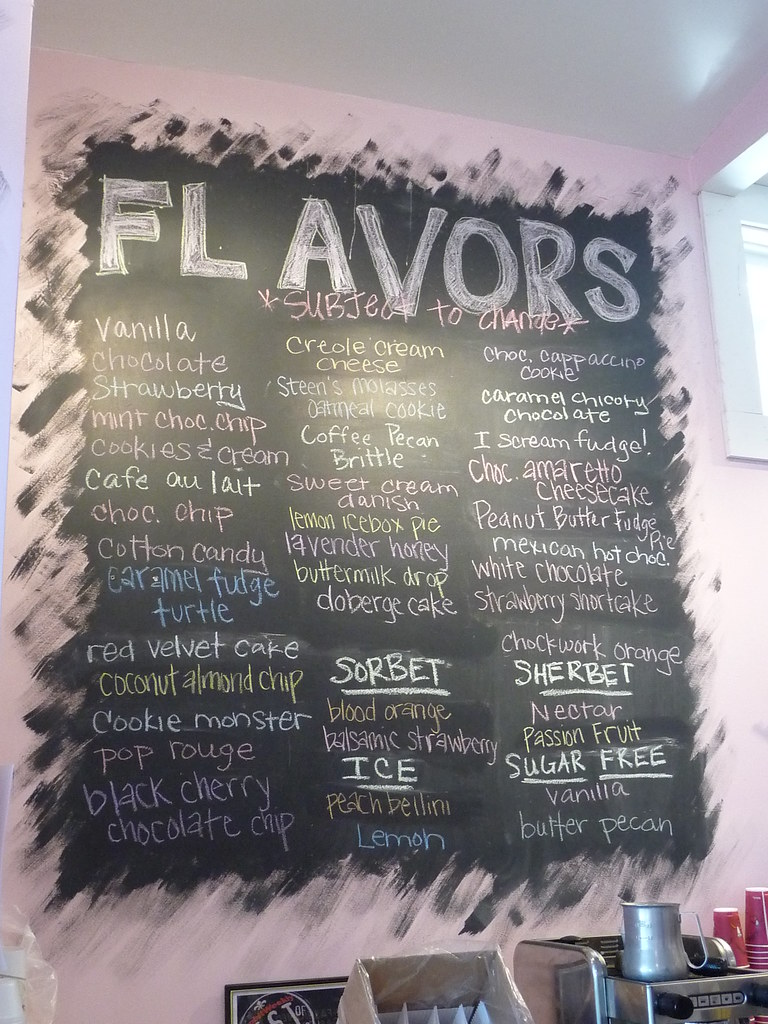 FLAVORS
*SUBJECT to CHANGE*
vanilla
chocolate
Strawberry
mint choc.chip
cookies & cream
cafe au lait
choc. chip
cotton candy
caramel fudge
turtle
red velvet cake
coconut almond chip
cookie monster
pop rouge
black cherry
chocolate chip
creole cream
cheese
Steen's molasses
oatmeal cookie
Coffee Pecan
Brittle
sweet cream
danish
lemon icebox pie
lavender honey
buttermilk drop
doberge cake
SORBET
blood orange
balsamic strawberry
ICE
peach bellini
Lemon
choc. cappaccino
cookie
caramel chicory
chocolate
I scream fudge!
Choc. amaretto
cheesecake
Peanut Butter Fudge
Pie
mexican hot choc.
white chocolate
strawberry shortcake
chockwork orange
SHERBET
Nectar
Passion Fruit
SUGAR FREE
vanilla
butter pecan
OF